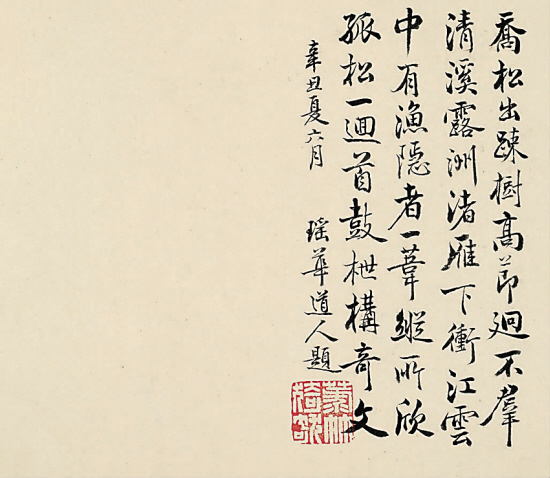 喬松出疎樹高節迥不羣
清溪露洲渚雁下衝江雲
中有漁隱者一葦縱所欣
孤松一迴首鼓枻構奇文
辛丑夏六月 瑤華道人題